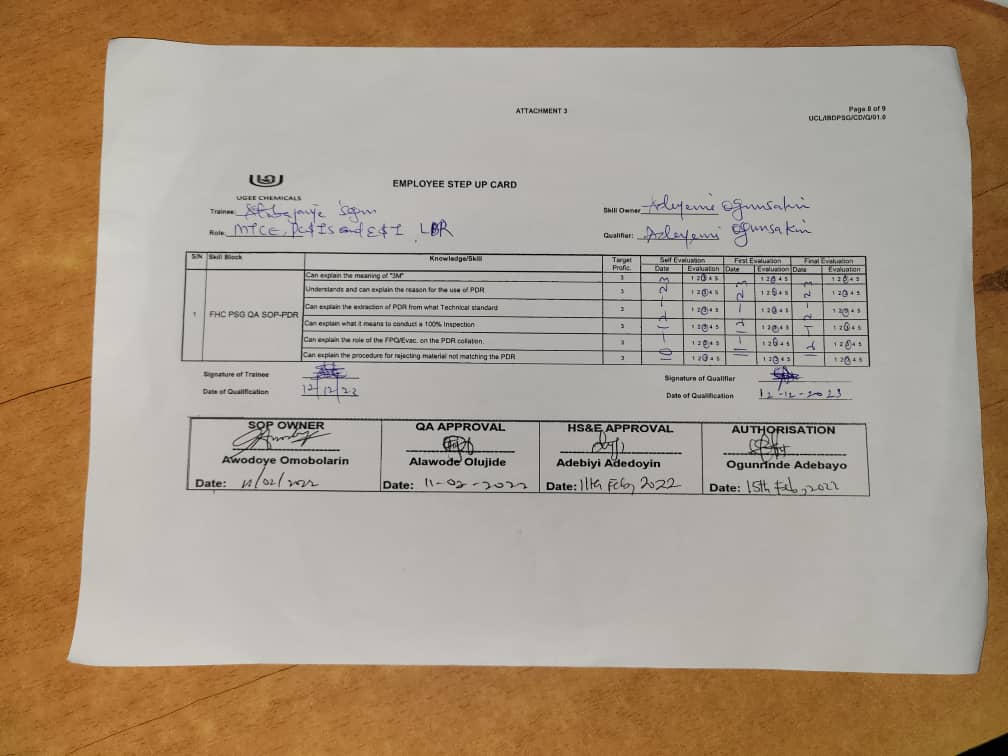 ATTACHMENT 3
Page 8 of 9
UCL/IBDPSG/CD/Q/01.0
UGEE CHEMICALS
EMPLOYEE STEP UP CARD
Trainee: Segun
Skill Owner Adeyemi Ogunsakin
Role: MTCE, PC&IS and E&I LDR
Qualifier: Adeyemi Ogunsakin
S/N Skill Block Knowledge/Skill Target Profic. Self Evaluation First Evaluation Final Evaluation
Date Evaluation Date Evaluation Date Evaluation
1 FHC PSG QA SOP-PDR
Can explain the meaning of "3M" 3 1 2 3 4 5 1 2 3 4 5 1 2 3 4 5
Understands and can explain the reason for the use of PDR 3 1 2 3 4 5 1 2 3 4 5 1 2 3 4 5
Can explain the extraction of PDR from what Technical standard 3 1 2 3 4 5 1 2 3 4 5 1 2 3 4 5
Can explain what it means to conduct a 100% Inspection 3 1 2 3 4 5 1 2 3 4 5 1 2 3 4 5
Can explain the role of the FPQ/Evac. on the PDR collation. 3 1 2 3 4 5 1 2 3 4 5 1 2 3 4 5
Can explain the procedure for rejecting material not matching the PDR 3 1 2 3 4 5 1 2 3 4 5 1 2 3 4 5
Signature of Trainee
Signature of Qualifier
Date of Qualification 12/12/23
Date of Qualification 12-12-2023
SOP OWNER QA APPROVAL HS&E APPROVAL AUTHORISATION
Awodoye Omobolarin Alawode Olujide Adebiyi Adedoyin Ogunrinde Adebayo
Date: 11/02/2022 Date: 11-02-2022 Date: 11th Feb, 2022 Date: 15th Feb, 2022